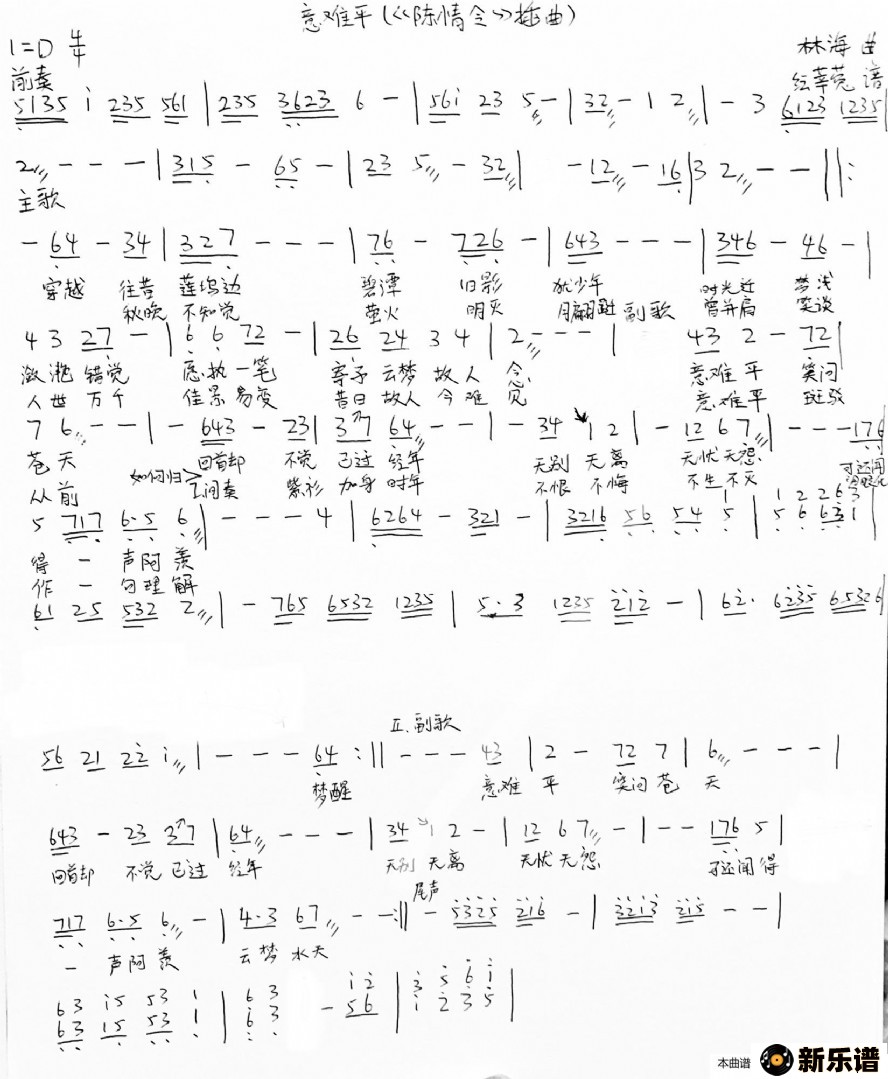 意难平(《陈情令》插曲)
1=D 4/4 林海 曲
前奏
5135 i 235 561 | 235 3623 6 - | 561 23 5 - | 32 - 1 2 | - 3 6123 1235
2 - - - | 315 - 65 - | 23 5 - 32 | - 12 - 16 | 3 2 - - ||:
主歌
- 64 - 34 | 327 - - - | 76 - 726 - | 643 - - - | 346 - 46 - |
穿越 往昔 莲坞边 碧潭 旧影 犹少年 时光迁 梦浅
秋晚 不知觉 萤火 明灭 副歌 曾并肩 笑谈
4 3 27 - | 6 6 72 - | 26 24 3 4 | 2 - - - | 43 2 - 72 |
潋滟 错觉 愿执一笔 云梦 故人 念 意难平 笑问
人世 万千 佳景易变 昔日 故人 今难 见 意难平 斑驳
7 6 - - | - 643 - 23 | 3 7 64 - - | - 34 1 2 | - 12 6 7 | - - - 176
苍天 回首却 不觉 已过 经年 无别 无离 无忧无怨 可还闻
从前 如何归 I.间奏 紫衫 加身 时年 不恨 不悔 不生不灭
5 717 6·5 6 | - - - 4 | 6264 - 321 - | 3216 56 54 5 | 5 6 63 1
得 一 声阿羡
作 一 句理解
61 25 532 2 | - 765 6532 1235 | 5·3 1235 212 - | 62· 6235 65326
II.副歌
56 21 22 i | - - - 64 :|| - - - 43 | 2 - 72 7 | 6 - - - |
梦醒 意难 平 笑问 苍 天
643 - 23 37 | 64 - - - | 34 1 2 - | 12 6 7 - | - - 176 5 |
回首却 不觉 已过 经年 无别 无离 无忧 无怨 可还闻 得
尾声
717 6·5 6 - | 4·3 67 - - :|| - 5325 216 - | 3213 215 - - |
一 声阿 羡 云梦 水天
63 15 53 1 | 6 3 i 2 | 3 5 6 i
63 15 53 1 | 6 3 - 56 | i 2 3 5 |
本曲谱 新乐谱